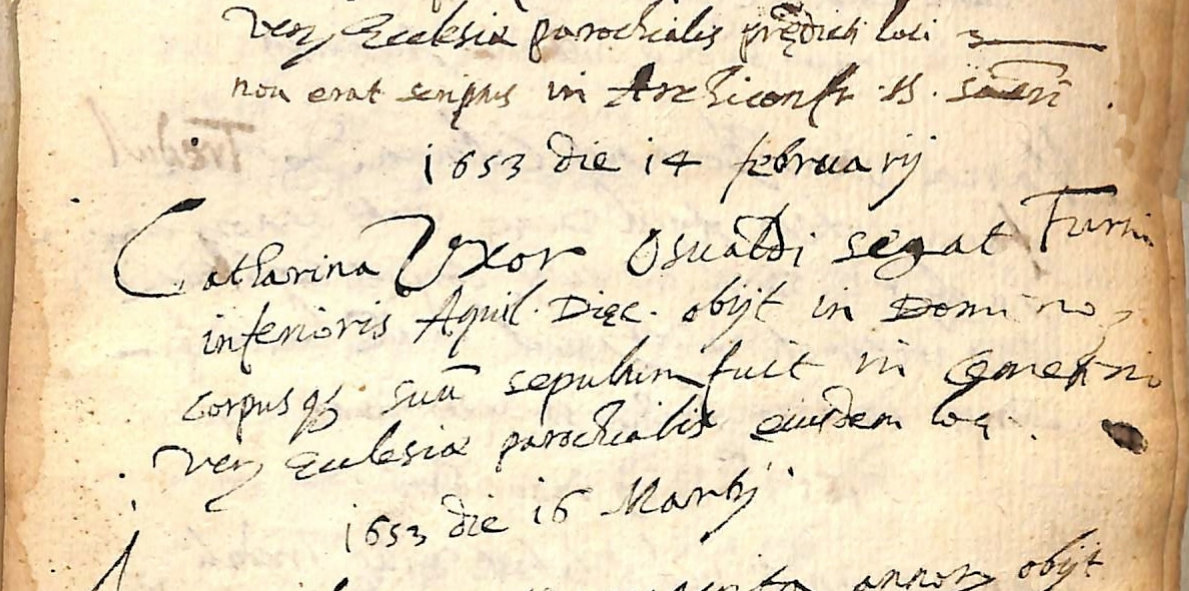 Ven Ecclesiæ parochialis prędicti loci
non erat scriptus in Archiconfr. SS. Sacri
1653 die 14 februarij
Catharina Vxor Osualdi segat Furni
inferioris Aquil. Dięc. obijt in Domino,
corpusq3 suū sepultum fuit in Cęmeterio
Ven Ecclesiæ parochialis eiusdem loci.
1653 die 16 Martij
annor obijt